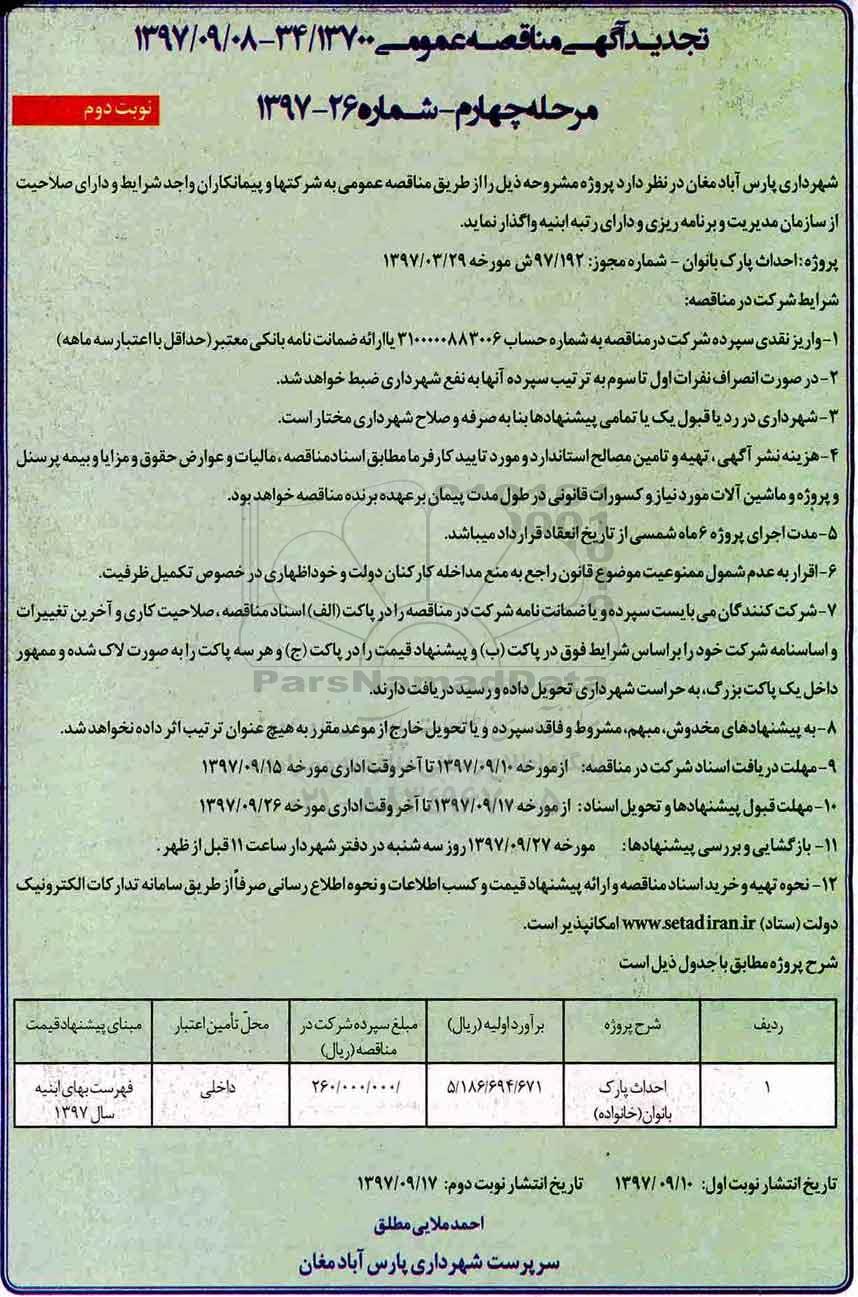 تجدیدآگهی مناقصه عمومی ۳۴/۱۳۷۰۰-۱۳۹۷/۰۹/۰۸
مرحله چهارم-شماره ۲۶-۱۳۹۷
نوبت دوم
شهرداری پارس آباد مغان در نظر دارد پروژه مشروحه ذیل را از طریق مناقصه عمومی به شرکتها و پیمانکاران واجد شرایط و دارای صلاحیت
از سازمان مدیریت و برنامه ریزی و دارای رتبه ابنیه واگذار نماید.
پروژه: احداث پارک بانوان - شماره مجوز: ۹۷/۱۹۲ش مورخه ۱۳۹۷/۰۳/۲۹
شرایط شرکت در مناقصه:
۱-واریز نقدی سپرده شرکت در مناقصه به شماره حساب ۳۱۰۰۰۰۰۸۸۳۰۰۶ یا ارائه ضمانت نامه بانکی معتبر (حداقل با اعتبار سه ماهه)
۲-در صورت انصراف نفرات اول تا سوم به ترتیب سپرده آنها به نفع شهرداری ضبط خواهد شد.
۳-شهرداری در رد یا قبول یک یا تمامی پیشنهادها بنا به صرفه و صلاح شهرداری مختار است.
۴-هزینه نشر آگهی، تهیه و تامین مصالح استاندارد و مورد تایید کارفرما مطابق اسناد مناقصه، مالیات و عوارض حقوق و مزایا و بیمه پرسنل
و پروژه و ماشین آلات مورد نیاز و کسورات قانونی در طول مدت پیمان بر عهده برنده مناقصه خواهد بود.
۵-مدت اجرای پروژه ۶ ماه شمسی از تاریخ انعقاد قرارداد میباشد.
۶-اقرار به عدم شمول ممنوعیت موضوع قانون راجع به منع مداخله کارکنان دولت و خوداظهاری در خصوص تکمیل ظرفیت.
۷-شرکت کنندگان می بایست سپرده و یا ضمانت نامه شرکت در مناقصه را در پاکت (الف) اسناد مناقصه، صلاحیت کاری و آخرین تغییرات
و اساسنامه شرکت خود را براساس شرایط فوق در پاکت (ب) و پیشنهاد قیمت را در پاکت (ج) و هر سه پاکت را به صورت لاک شده و ممهور
داخل یک پاکت بزرگ، به حراست شهرداری تحویل داده و رسید دریافت دارند.
ParsNamadData
۸-به پیشنهادهای مخدوش، مبهم، مشروط و فاقد سپرده و یا تحویل خارج از موعد مقرر به هیچ عنوان ترتیب اثر داده نخواهد شد.
۹-مهلت دریافت اسناد شرکت در مناقصه: از مورخه ۱۳۹۷/۰۹/۱۰ تا آخر وقت اداری مورخه ۱۳۹۷/۰۹/۱۵
۱۰-مهلت قبول پیشنهادها و تحویل اسناد: از مورخه ۱۳۹۷/۰۹/۱۷ تا آخر وقت اداری مورخه ۱۳۹۷/۰۹/۲۶
۱۱- بازگشایی و بررسی پیشنهادها: مورخه ۱۳۹۷/۰۹/۲۷ روز سه شنبه در دفتر شهردار ساعت ۱۱ قبل از ظهر.
۱۲- نحوه تهیه و خرید اسناد مناقصه و ارائه پیشنهاد قیمت و کسب اطلاعات و نحوه اطلاع رسانی صرفاً از طریق سامانه تدارکات الکترونیک
دولت (ستاد) www.setadiran.ir امکانپذیر است.
شرح پروژه مطابق با جدول ذیل است
ردیف شرح پروژه برآورد اولیه (ریال) مبلغ سپرده شرکت در محلّ تأمین اعتبار مبنای پیشنهاد قیمت
مناقصه (ریال)
۱ احداث پارک ۵/۱۸۶/۶۹۴/۶۷۱ ۲۶۰/۰۰۰/۰۰۰/ داخلی فهرست بهای ابنیه
بانوان (خانواده) سال ۱۳۹۷
تاریخ انتشار نوبت اول: ۱۳۹۷/۰۹/۱۰ تاریخ انتشار نوبت دوم: ۱۳۹۷/۰۹/۱۷
احمد ملایی مطلق
سرپرست شهرداری پارس آباد مغان